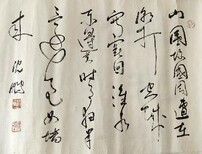 山圍故國周遭在
潮打空城
寂寞回淮水
東邊舊時月夜
深還過女墻
來 沈鵬